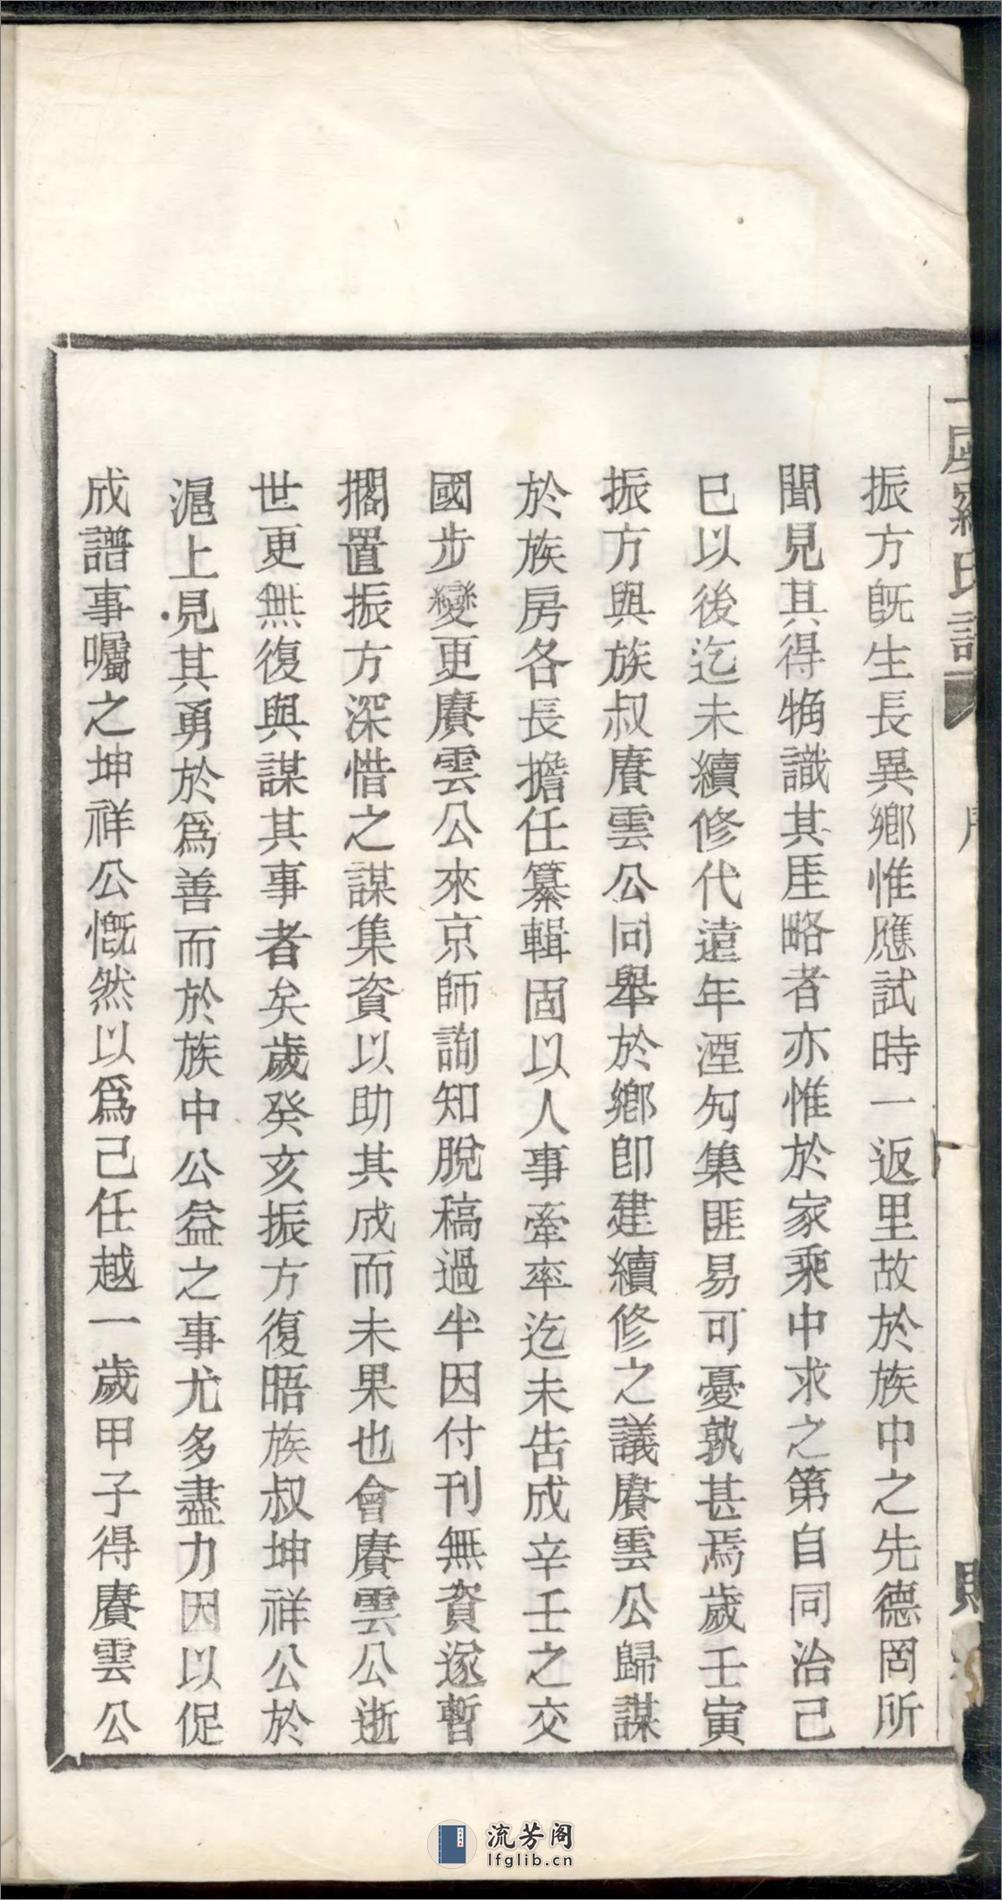 羅氏譜
序
振方旣生長異鄉惟應試時一返里故於族中之先德罔所
聞見其得觕識其厓略者亦惟於家乘中求之第自同治己
巳以後迄未續修代遠年湮勾集匪易可憂孰甚焉歲壬寅
振方與族叔賡雲公同舉於鄉卽建續修之議賡雲公歸謀
於族房各長擔任纂輯固以人事牽率迄未告成辛壬之交
國步變更賡雲公來京師詢知脫稿過半因付刊無資遂暫
擱置振方深惜之謀集資以助其成而未果也會賡雲公逝
世更無復與謀其事者矣歲癸亥振方復晤族叔坤祥公於
滬上見其勇於爲善而於族中公益之事尤多盡力因以促
成譜事囑之坤祥公慨然以爲己任越一歲甲子得賡雲公
流芳阁
lfglib.cn